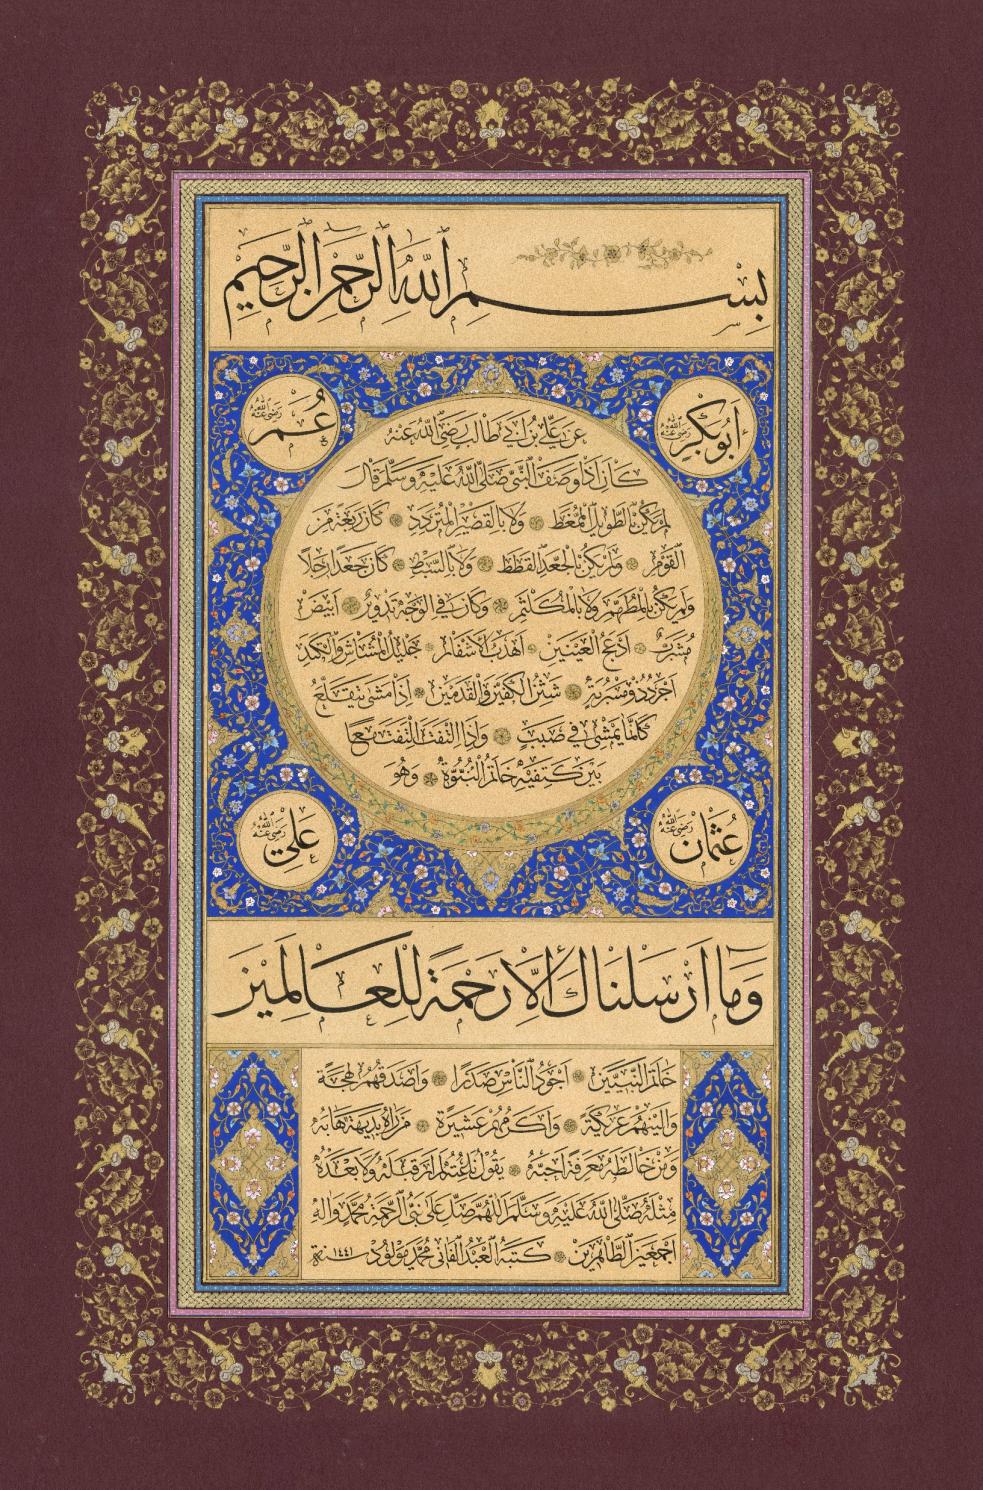 بسم الله الرحمن الرحيم
أبو بكر رضي الله عنه
عمر رضي الله عنه
عن علي بن أبي طالب رضي الله عنه
كان إذا وصف النبي صلى الله عليه وسلم قال
لم يكن بالطويل الممغط ولا بالقصير المتردد كان ربعة من
القوم ولم يكن بالجعد القطط ولا بالسبط كان جعدا رجلا
ولم يكن بالمطهم ولا بالمكلثم وكان في الوجه تدوير أبيض
مشرب أدعج العينين أهدب الأشفار جليل المشاش والكتد
أجرد ذو مسربة شثن الكفين والقدمين إذا مشى يتقلع
كأنما يمشي في صبب وإذا التفت التفت معا
بين كتفيه خاتم النبوة وهو
عثمان رضي الله عنه
علي رضي الله عنه
وما أرسلناك إلا رحمة للعالمين
خاتم النبيين أجود الناس صدرا وأصدقهم لهجة
وألينهم عريكة وأكرمهم عشيرة من رآه بديهة هابه
ومن خالطه معرفة أحبه يقول ناعته لم أر قبله ولا بعده
مثله صلى الله عليه وسلم اللهم صل على نبي الرحمة محمد وآله
أجمعين الطاهرين كتبه العبد الفاني محمد مولود ١٤٤١ سنة